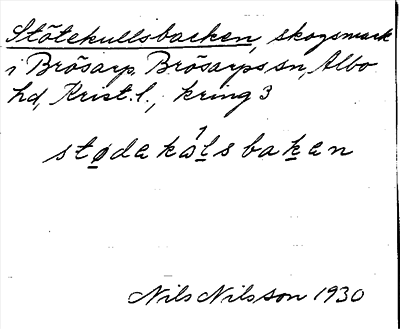 Stötekullsbacken, skogsmark
i Brösarp, Brösarps sn, Albo
hd, Krist. l., kring 3
stødakålsbakan
Nils Nilsson 1930